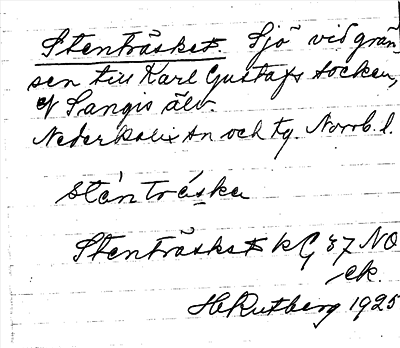 Stenträsket. Sjö vid grän-
sen till Karl Gustafs socken,
Sangis älv.
Nederkalix sn och tg. Norrb. l.
sténtrǽska
Stenträsket kG 87 NO
ek.
H Rutberg 1925